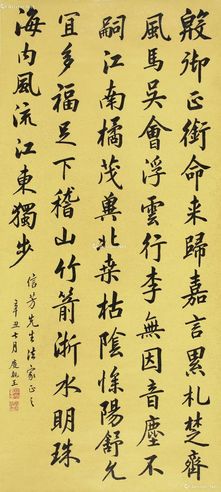 殷御正銜命来歸嘉言累札楚齊
風馬吳會浮雲行李無因音塵不
嗣江南橘茂冀北桑枯陰惨陽舒允
宜多福足下稽山竹箭浙水明珠
海内風流江東獨步
信芳先生法家正之
辛丑七月